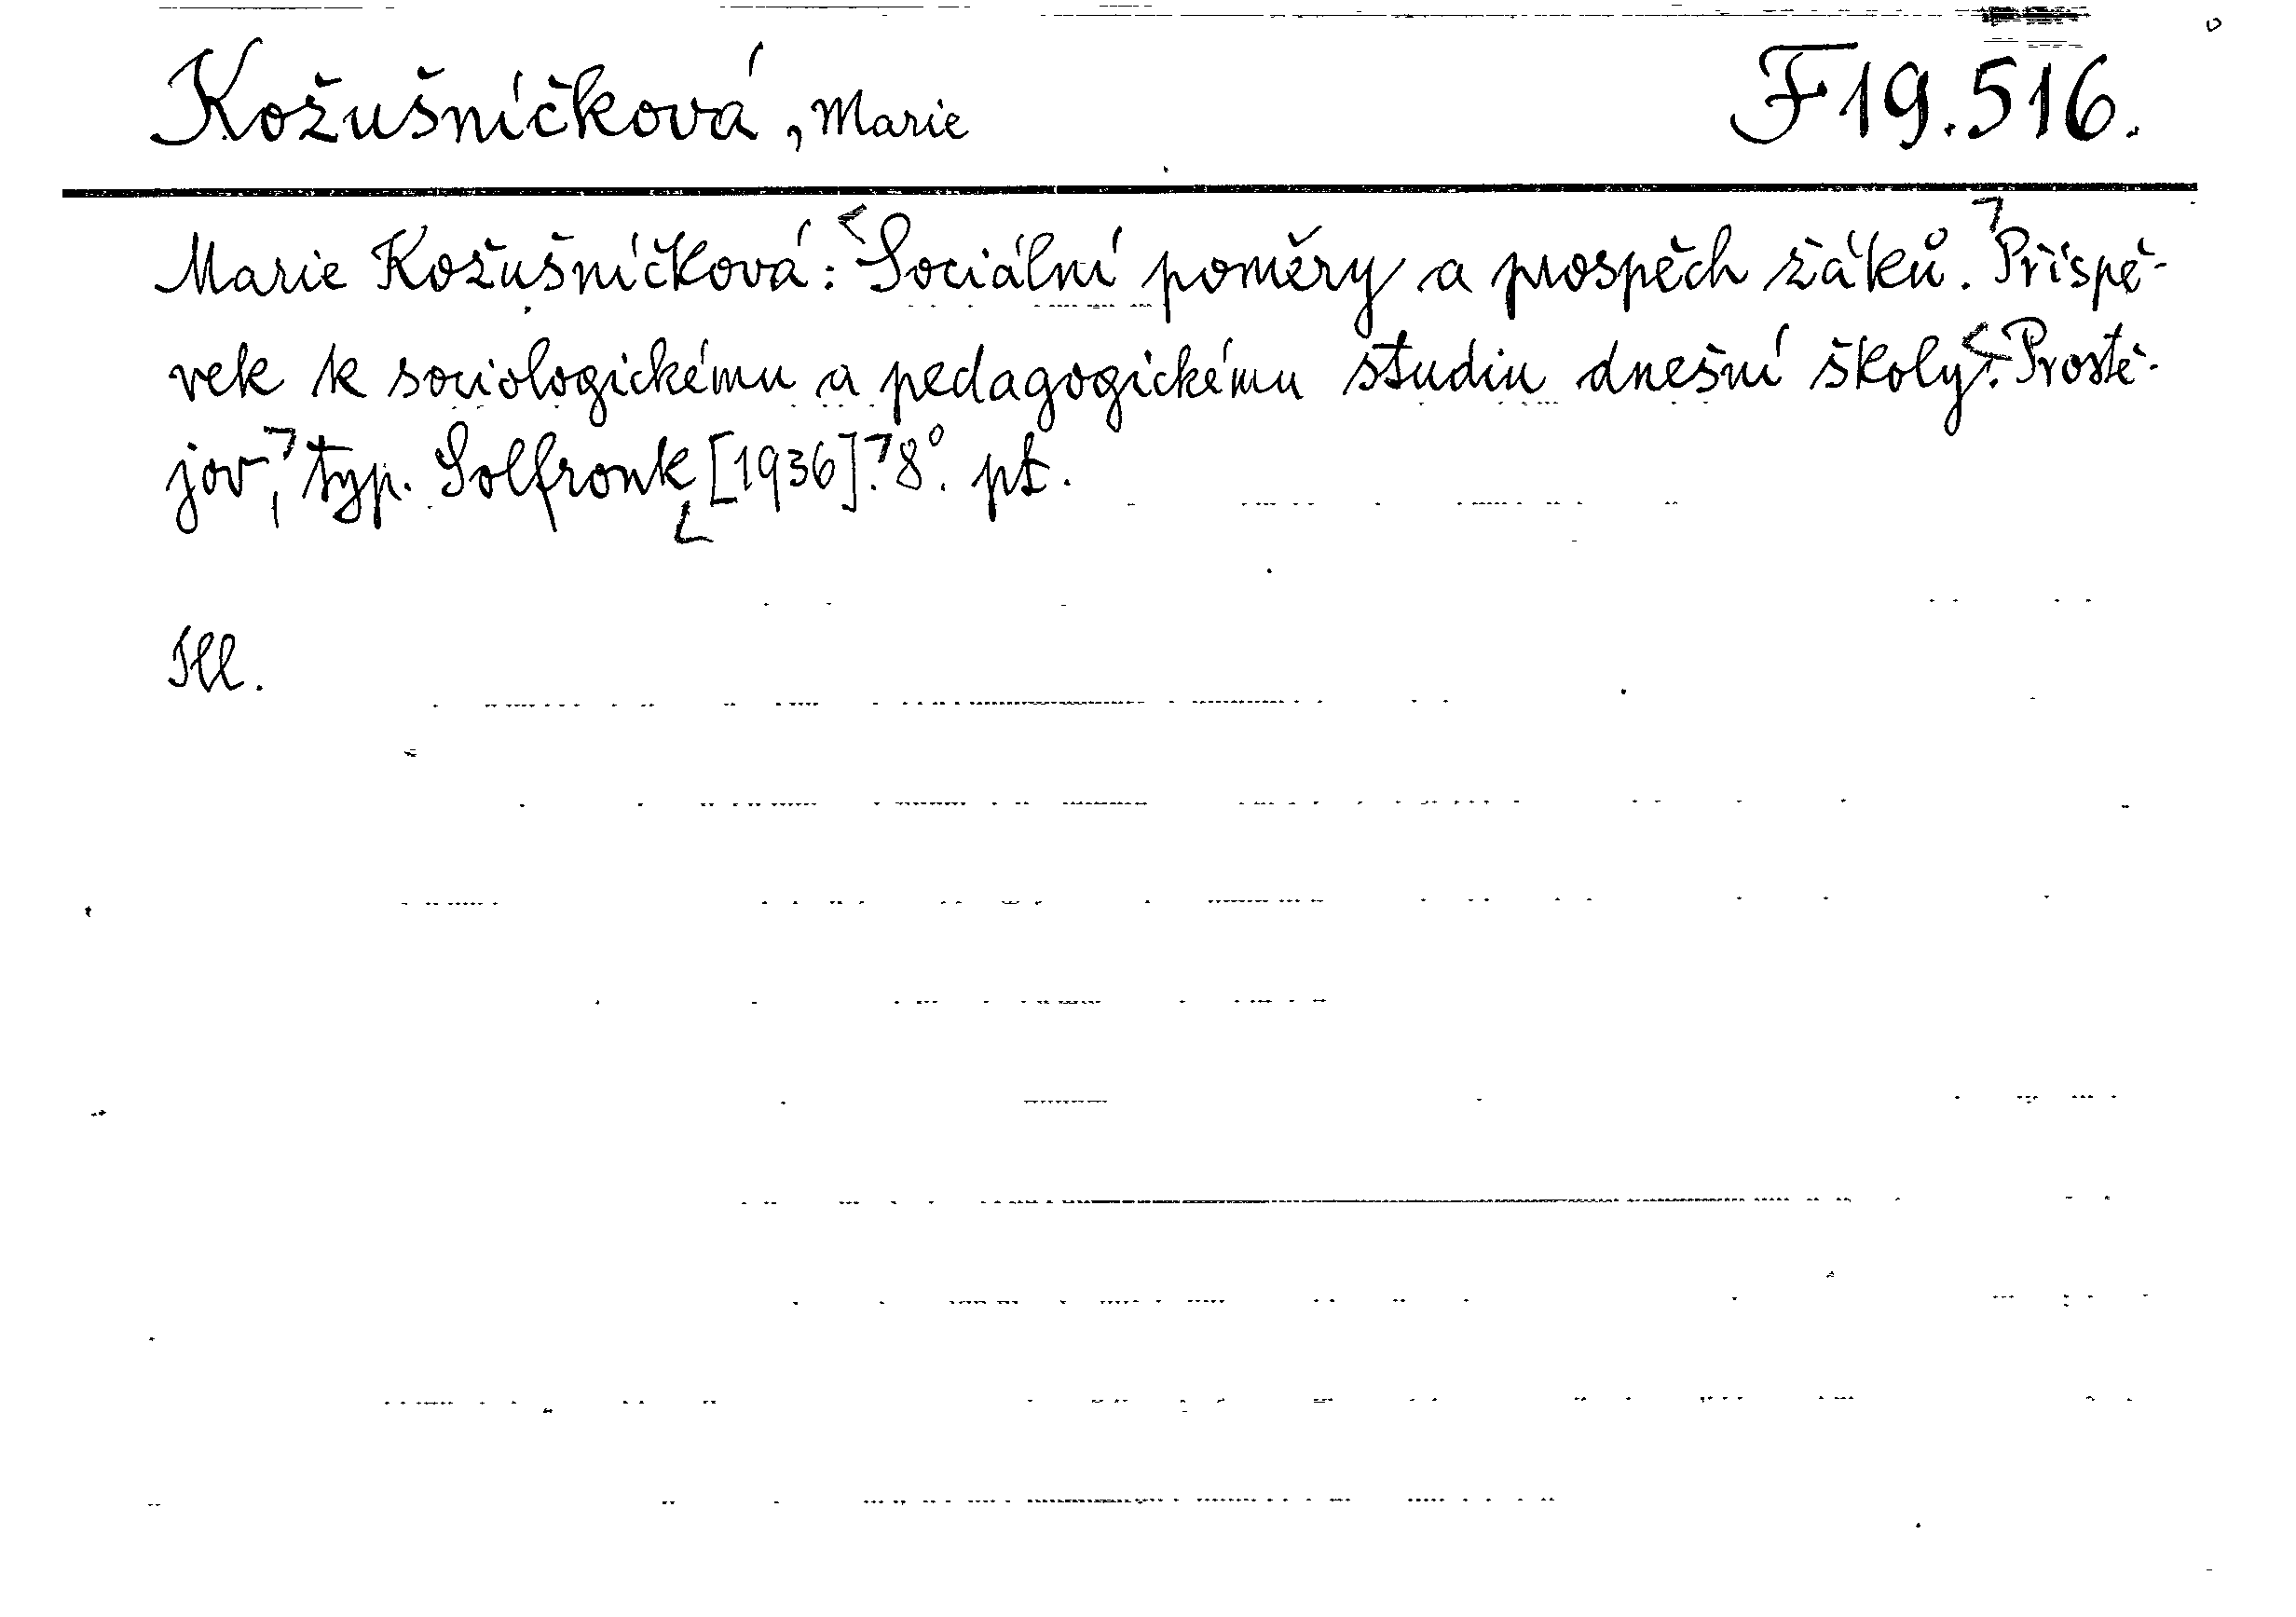 Kožušníčková, Marie F 19.516.
Marie Kožušníčková: Sociální poměry a prospěch žáků. Příspě-
vek k sociologickému a pedagogickému studiu dnešní školy. Prostě-
jov, typ. Solfronk [1936]. 8°. pt.
Ill.